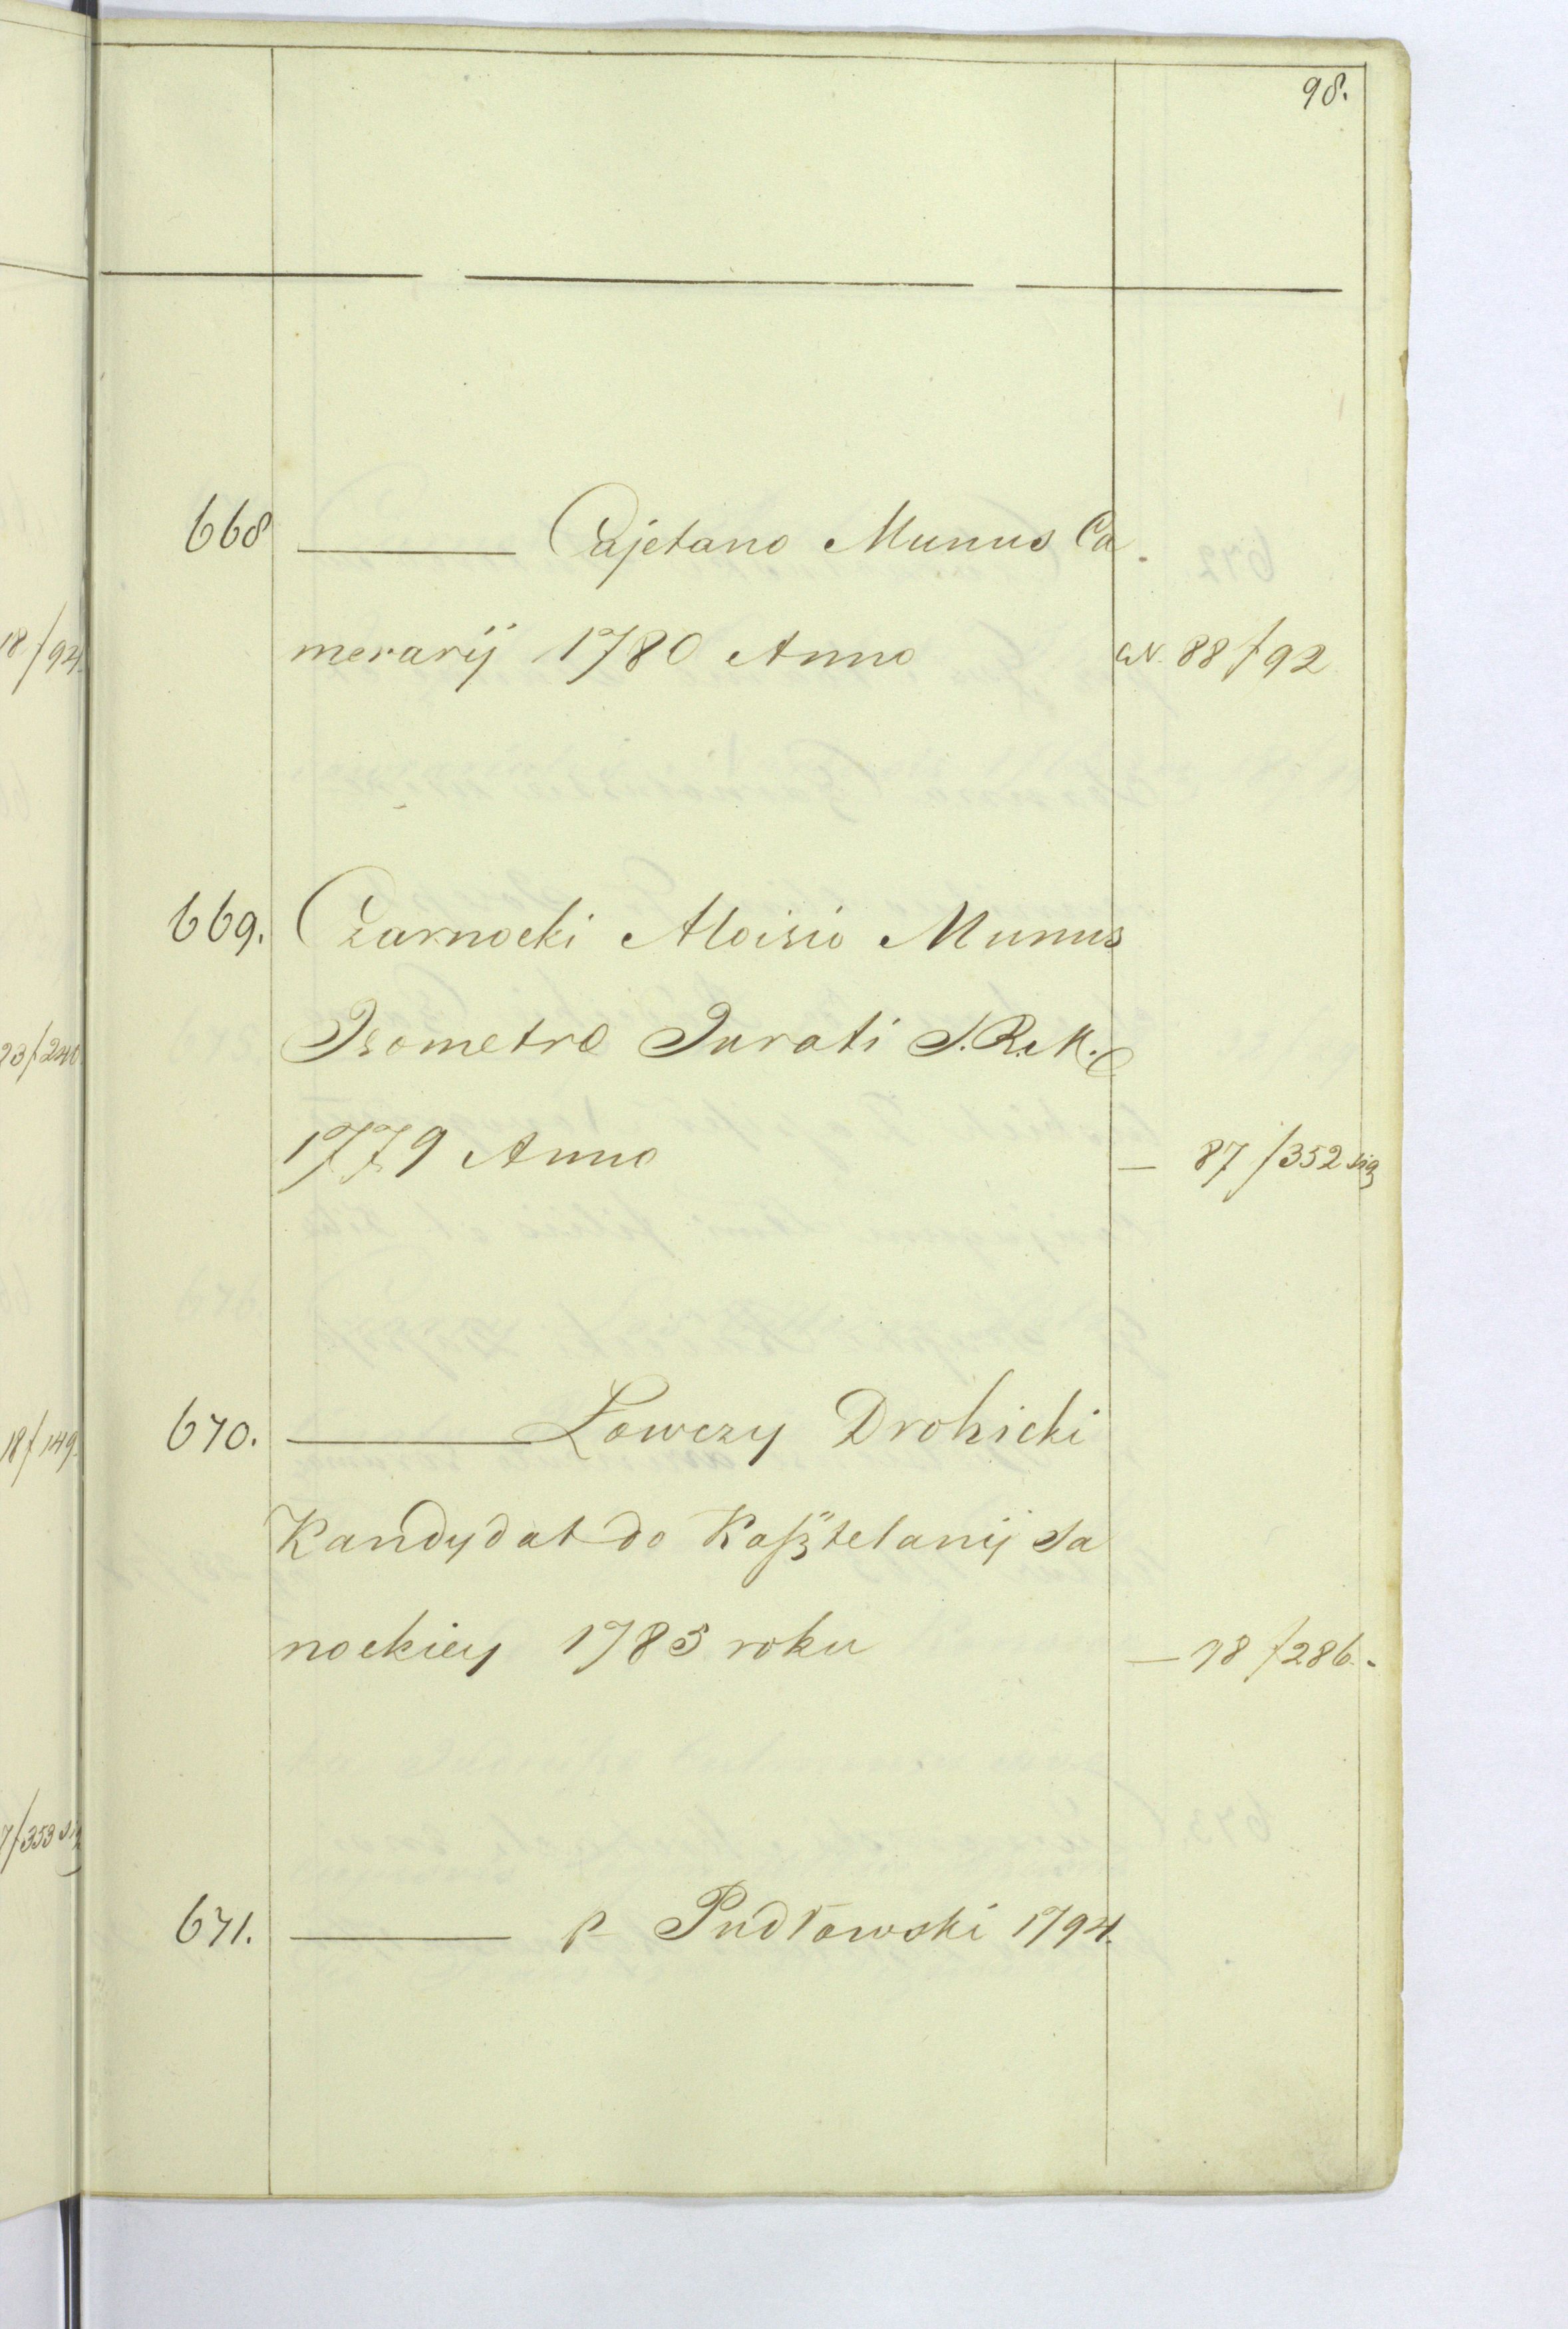 98.
668 ——— Cajetano Munus Ca
merarij 1780 Anno N. 88 f 92
669. Czarnocki Aloisio Munus
Isometra Jurati S. R. M.
1779 Anno — 87 f 352 sig
670. ——— Łowczy Drohicki
Kandydat do Kasztelanij Sa
nockiey 1785 roku — 98 f 286.
671. ——— p Pudłowski 1794.
18/94.
23/240
18f 149.
7/353 sig